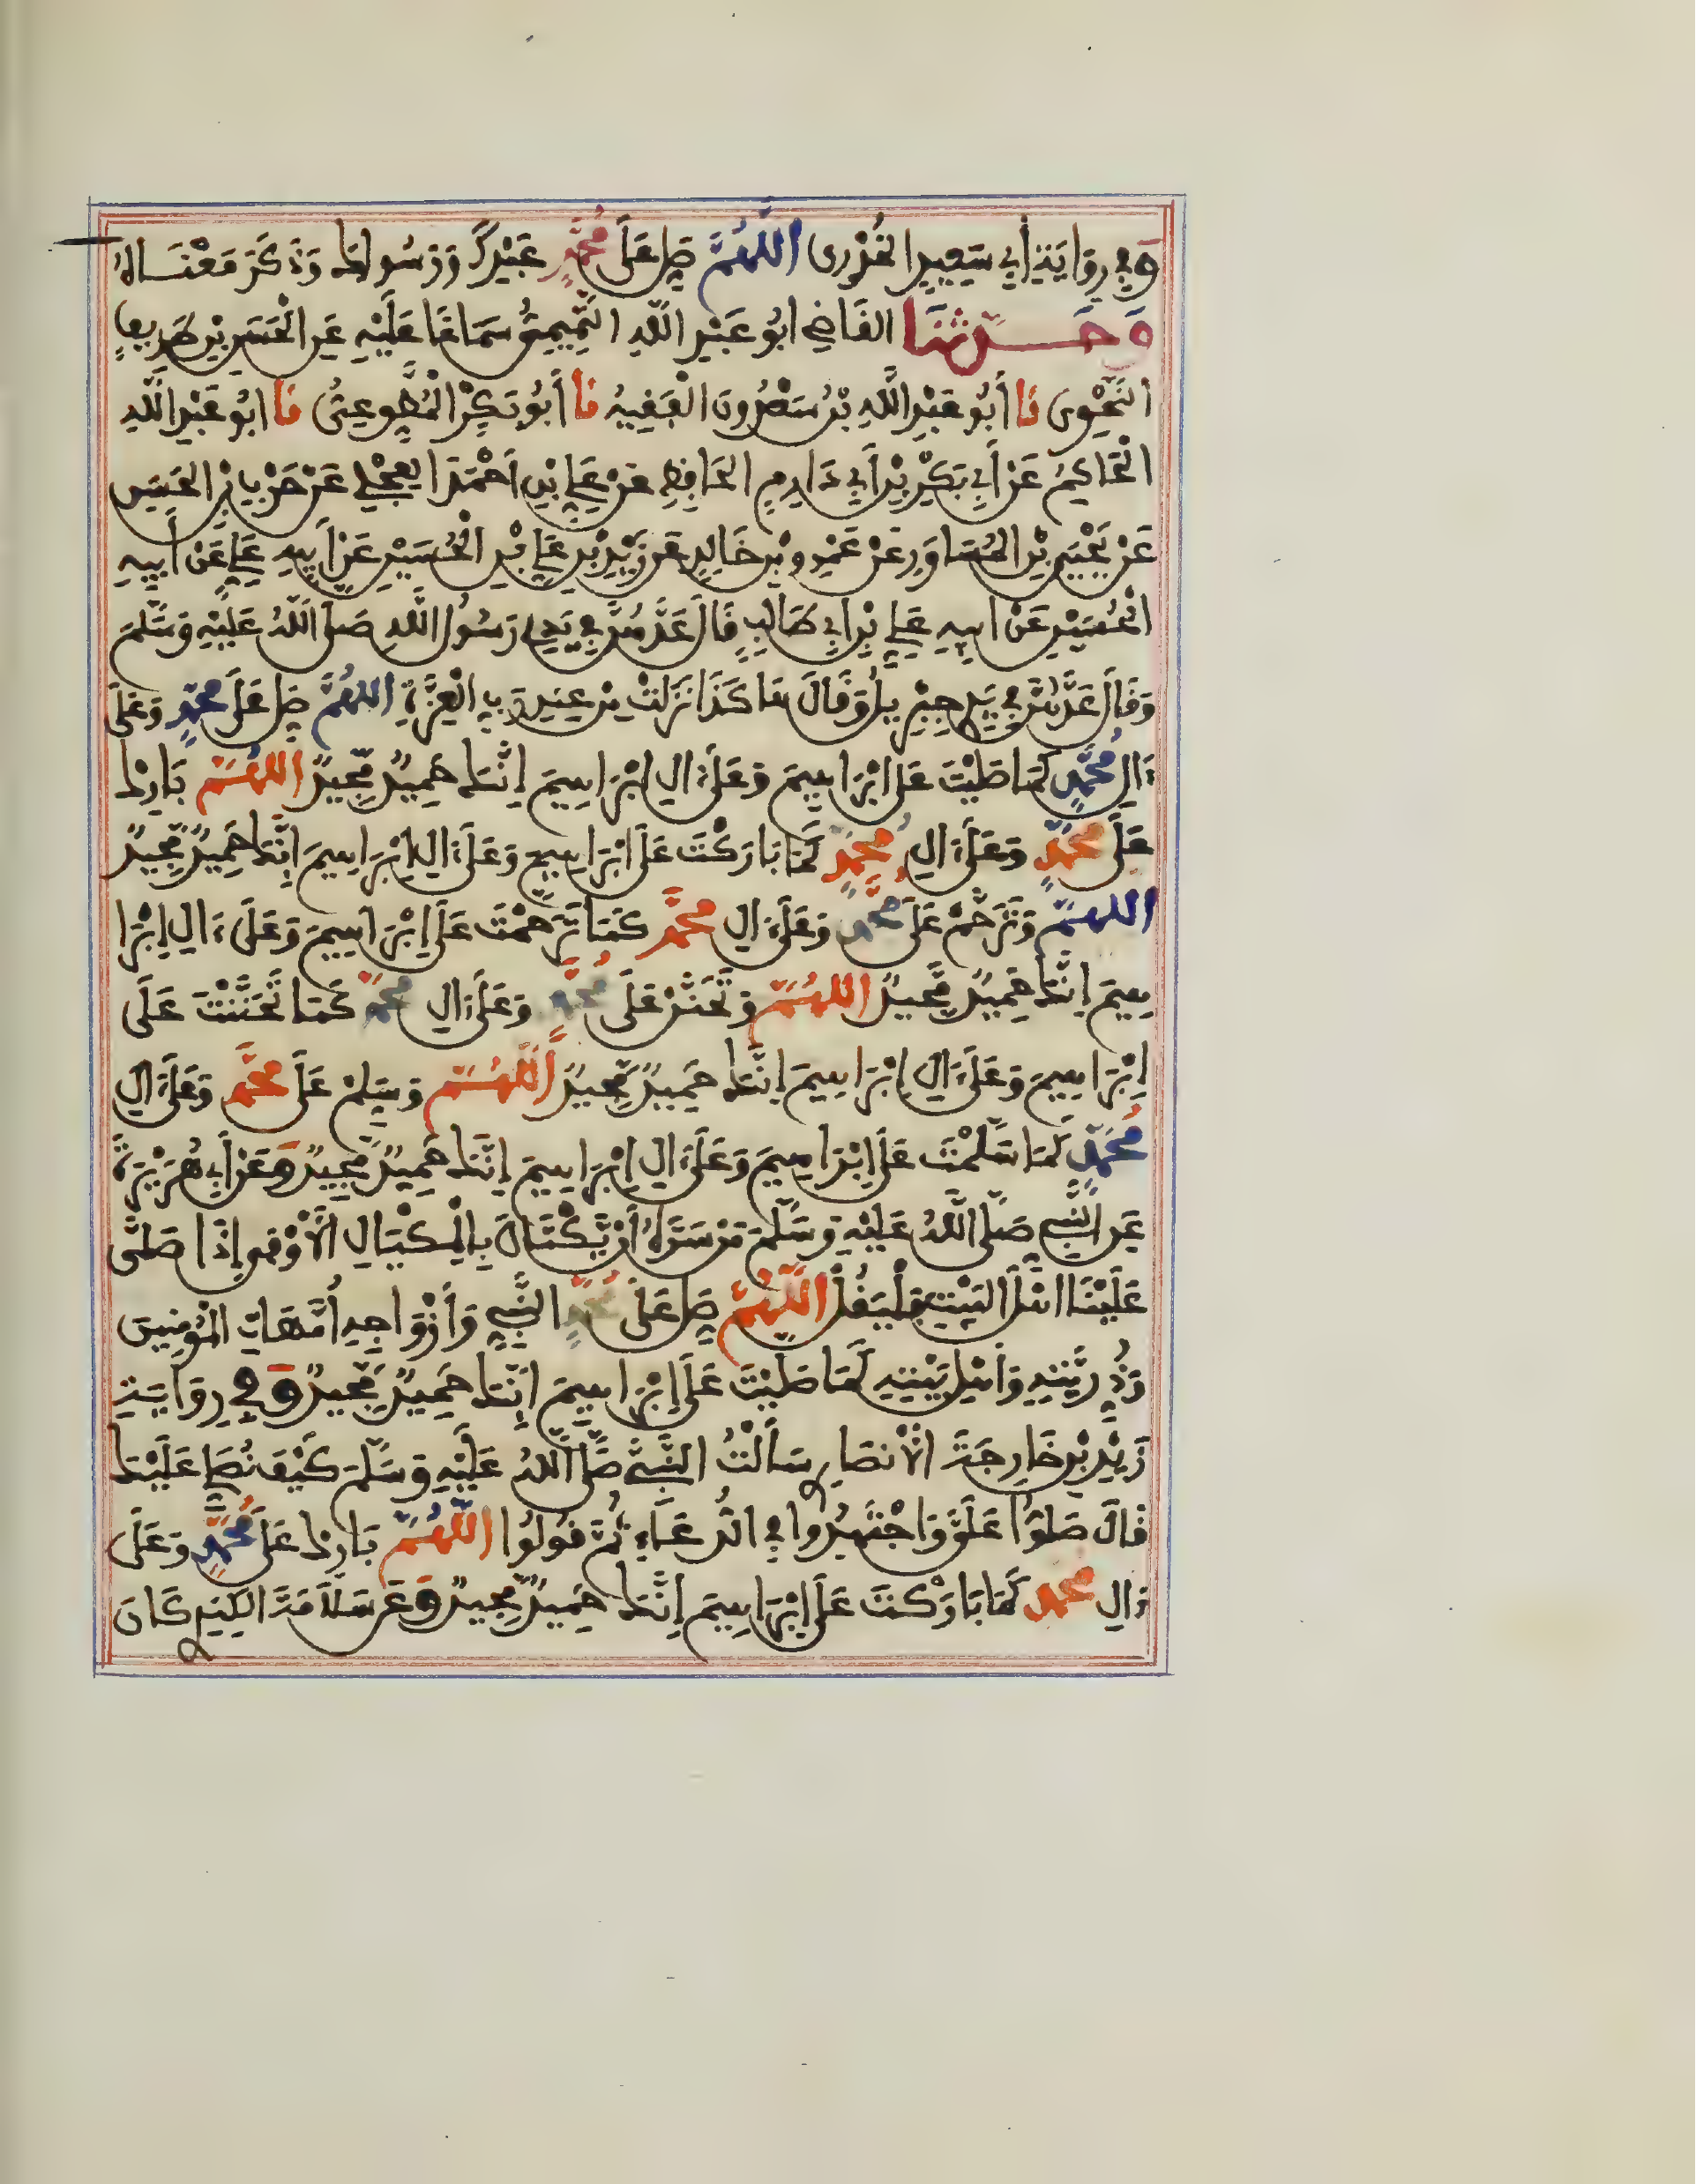 وَفِي رِوَايَةِ أَبِي سَعِيدٍ الْخُدْرِي اللَّهُمَّ صَلِّ عَلَى مُحَمَّدٍ عَبْدِكَ وَرَسُولِكَ وَذَكَرَ مَعْنَاهُ
وَحَدَّثَنَا الْقَاضِي أَبُو عَبْدِ اللَّهِ التَّمِيمِيُّ سَمَاعًا عَلَيْهِ عَنِ الْحَسَنِ بْنِ طَرِيفٍ
النَّحْوِي نَا أَبُو عَبْدِ اللَّهِ بْنُ سَعْدُونَ الْفَقِيهُ نَا أَبُو بَكْرٍ الْمُطَّوِّعِيُّ نَا أَبُو عَبْدِ اللَّهِ
الْحَاكِمُ عَنْ أَبِي بَكْرِ بْنِ أَبِي دَارِمٍ الْحَافِظِ عَنْ عَلِيِّ بْنِ أَحْمَدَ الْعِجْلِي عَنْ حَرْبِ بْنِ الْحَسَنِ
عَنْ يَحْيَى بْنِ الْمُسَاوِرِ عَنْ عَمْرِو بْنِ خَالِدٍ عَنْ زَيْدِ بْنِ عَلِيِّ بْنِ الْحُسَيْنِ عَنْ أَبِيهِ عَلِيٍّ عَنْ أَبِيهِ
الْحُسَيْنِ عَنْ أَبِيهِ عَلِيِّ بْنِ أَبِي طَالِبٍ قَالَ عَدَّهُنَّ فِي يَدِي رَسُولُ اللَّهِ صَلَّى اللَّهُ عَلَيْهِ وَسَلَّمَ
وَقَالَ عَدَّهُنَّ فِي يَدِي جِبْرِيلُ وَقَالَ هَاكَذَا نَزَلَتْ مِنْ عِنْدِ رَبِّ الْعِزَّةِ اللَّهُمَّ صَلِّ عَلَى مُحَمَّدٍ وَعَلَى
ءَالِ مُحَمَّدٍ كَمَا صَلَّيْتَ عَلَى إِبْرَاهِيمَ وَعَلَى ءَالِ إِبْرَاهِيمَ إِنَّكَ حَمِيدٌ مَّجِيدٌ اللَّهُمَّ بَارِكْ
عَلَى مُحَمَّدٍ وَعَلَى ءَالِ مُحَمَّدٍ كَمَا بَارَكْتَ عَلَى إِبْرَاهِيمَ وَعَلَى ءَالِ إِبْرَاهِيمَ إِنَّكَ حَمِيدٌ مَّجِيدٌ
اللَّهُمَّ وَتَرَحَّمْ عَلَى مُحَمَّدٍ وَعَلَى ءَالِ مُحَمَّدٍ كَمَا تَرَحَّمْتَ عَلَى إِبْرَاهِيمَ وَعَلَى ءَالِ إِبْرَا
هِيمَ إِنَّكَ حَمِيدٌ مَّجِيدٌ اللَّهُمَّ وَتَحَنَّنْ عَلَى مُحَمَّدٍ وَعَلَى ءَالِ مُحَمَّدٍ كَمَا تَحَنَّنْتَ عَلَى
إِبْرَاهِيمَ وَعَلَى ءَالِ إِبْرَاهِيمَ إِنَّكَ حَمِيدٌ مَّجِيدٌ اللَّهُمَّ وَسَلِّمْ عَلَى مُحَمَّدٍ وَعَلَى ءَالِ
مُحَمَّدٍ كَمَا سَلَّمْتَ عَلَى إِبْرَاهِيمَ وَعَلَى ءَالِ إِبْرَاهِيمَ إِنَّكَ حَمِيدٌ مَّجِيدٌ وَعَنْ أَبِي هُرَيْرَةَ
عَنِ النَّبِيِّ صَلَّى اللَّهُ عَلَيْهِ وَسَلَّمَ مَنْ سَرَّهُ أَنْ يَّكْتَالَ بِالْمِكْيَالِ الْأَوْفَى إِذَا صَلَّى
عَلَيْنَا أَهْلَ الْبَيْتِ فَلْيَقُلْ اللَّهُمَّ صَلِّ عَلَى مُحَمَّدٍ النَّبِيِّ وَأَزْوَاجِهِ أُمَّهَاتِ الْمُؤْمِنِينَ
وَذُرِّيَّتِهِ وَأَهْلِ بَيْتِهِ كَمَا صَلَّيْتَ عَلَى إِبْرَاهِيمَ إِنَّكَ حَمِيدٌ مَّجِيدٌ وَفِي رِوَايَةِ
زَيْدِ بْنِ خَارِجَةَ الْأَنْصَارِي سَأَلْتُ النَّبِيَّ صَلَّى اللَّهُ عَلَيْهِ وَسَلَّمَ كَيْفَ نُصَلِّي عَلَيْكَ
فَقَالَ صَلُّوا عَلَيَّ وَاجْتَهِدُوا فِي الدُّعَاءِ ثُمَّ قُولُوا اللَّهُمَّ بَارِكْ عَلَى مُحَمَّدٍ وَعَلَى
ءَالِ مُحَمَّدٍ كَمَا بَارَكْتَ عَلَى إِبْرَاهِيمَ إِنَّكَ حَمِيدٌ مَّجِيدٌ وَعَنْ سَلَامَةَ الْكِنْدِي كَانَ